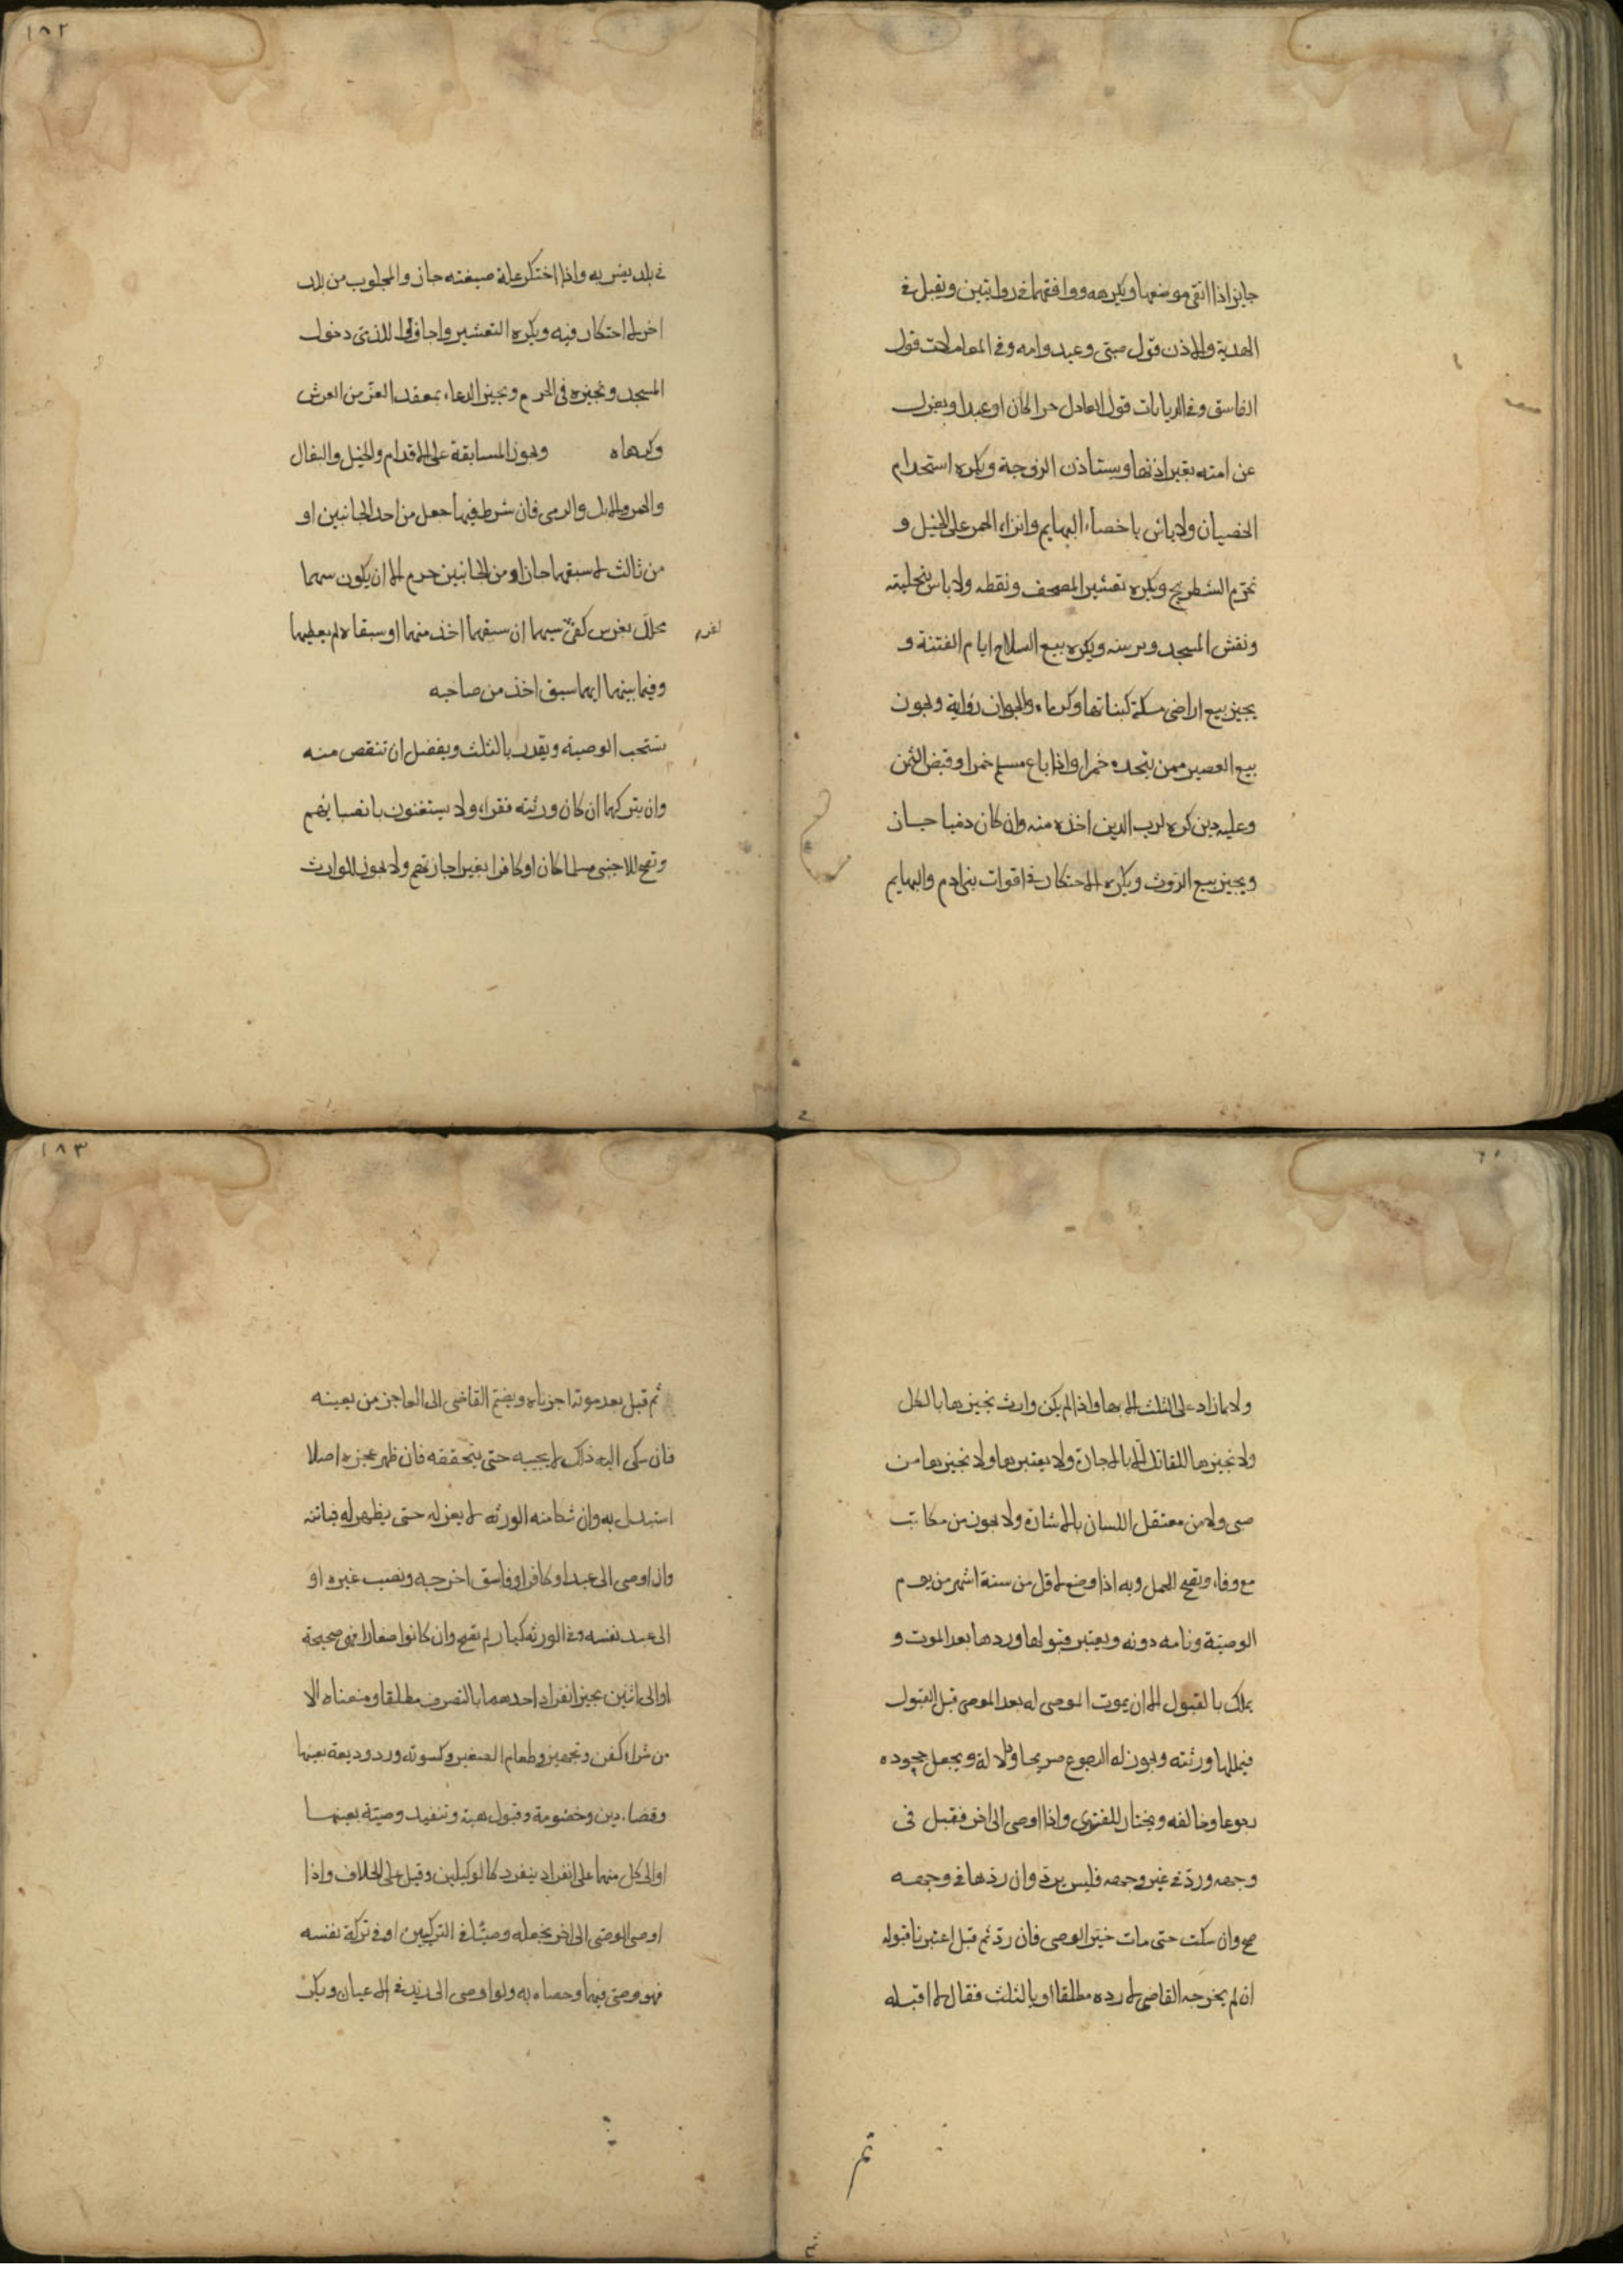 جايز اذا اتقى موضعها ويكرهه ووافقهما في روايتين ويقبل في
الهدية والاذن قول صبى وعبد وامه وفي المعاملات قول
الفاسق وفي الديانات قول العادل حرا كان او عبدا ويعزل
عن امته بغير اذنها ويستاذن الزوجة ويكره استخدام
الخصيان ولا باس باخصاء البهايم وانزاء الحمر على الخيل و
نحرم الشطرنج ويكره تعشير المصحف ونقطه ولا باس بتحليته
ونقش المسجد ويكره بيع السلاح ايام الفتنة و
يجيز بيع اراضى مكة كبنائها وكرهاه والجواز رواية ويجوز
بيع العصير ممن يتخذه خمرا واذا باع مسلم خمرا وقبض الثمن
وعليه دين كره لرب الدين اخذه منه وان كان ذميا جاز
ويجيز بيع الروث ويكره الاحتكار في اقوات بنى ادم والبهايم
١٨٢
في بلد يضر به واذا احتكر غلة ضيعته جاز والمجلوب من بلد
اخر لا احتكار فيه ويكره التعشير واجازوا للذمى دخول
المسجد ونجيزه في الحرم ويجيز الدعاء بمعقد العز من العرش
وكرهاه ويجوز المسابقة على الاقدام والخيل والبغال
والحمر والابل والرمى فان شرط فيها جعل من احد الجانبين او
من ثالث لاسبقهما جاز او من الجانبين حرم الا ان يكون بينهما
محلل بفرس كفى بينهما ان سبقهما اخذ منهما او سبقاه لم يعطهما
وفيما بينهما ايهما سبق اخذ من صاحبه
تستحب الوصية ويقدر بالثلث ويفضل ان تنقص منه
وان يتركها ان كان ورثته فقراء ولا يستغنون بانصبائهم
وتصح للاجنبى مسلما كان او كافرا بغير اجازتهم ولا يجوز للوارث
ولا بما زاد على الثلث الا بها واذا لم يكن وارث نجيزها بالكل
ولا نجيزها للقاتل الا بالاجازة ولا يعتبرها ولا نجيزها من
صبى ولا من معتقل اللسان بالاشارة ولا يجوز من مكاتب
مع وفاء وتصح للحمل وبه اذا وضع لاقل من ستة اشهر من يوم
الوصية ونامه دونه ويعتبر قبولها وردها بعد الموت و
يملك بالقبول الا ان يموت الموصى له بعد الموصى قبل القبول
فيملكها ورثته ويجوز له الرجوع صريحا ودلالة ويجعل جحوده
رجوعا وخالفه ويختار للفتوى واذا اوصى الى اخر فقبل في
وجهه ورد في غير وجهه فليس برد وان ردها في وجهه
صح وان سكت حتى مات خير الوصى فان رد ثم قبل اعتبرنا قبوله
ان لم يخرجه القاضى لا رده مطلقا او بالثلث فقال لا اقبله
١٨٣
ثم قبل بعد موته اجزناه ويضم القاضى الى العاجز من يعينه
فان شكى اليه ذلك لا يجيبه حتى يتحققه فان ظهر عجزه اصلا
استبدل به وان شكا منه الورثه لا يعزله حتى يظهر له خيانته
وان اوصى الى عبد او كافر او فاسق اخرجه ونصب غيره او
الى عبد نفسه وفي الورثه كبار لم تصح وان كانوا صغارا فهى صحيحة
او الى اثنين يجيز انفراد احدهما بالتصرف مطلقا ومنعناه الا
من شراء كفن وتجهيز وطعام الصغير وكسوته ورد وديعة بعينها
وقضاء دين وخصومة وقبول هبة وتنفيذ وصية بعينها
او الى كل منهما على انفراد ينفرد كالوكيلين وقيل على الخلاف واذا
اوصى الوصى الى اخر نجعله وصيا في التركتين او في تركة نفسه
فهو وصى فيهما وخصاه به ولو اوصى الى زيد في الاعيان وبكر